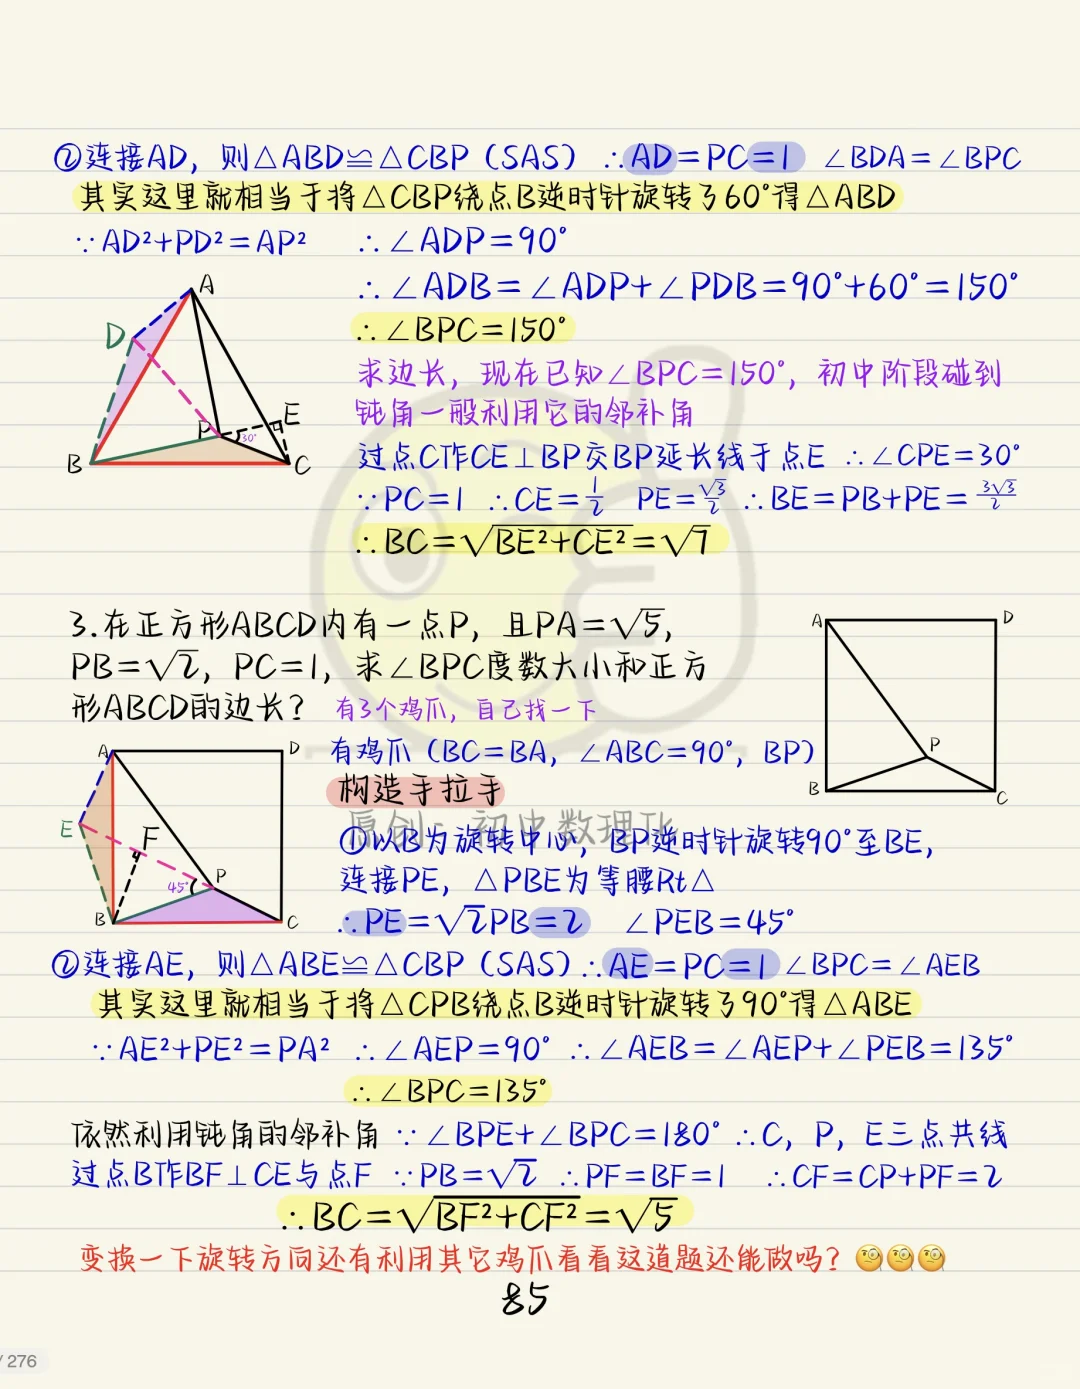 ②连接AD，则△ABD≌△CBP（SAS）∴AD=PC=1 ∠BDA=∠BPC
其实这里就相当于将△CBP绕点B逆时针旋转了60°得△ABD
∵AD²+PD²=AP² ∴∠ADP=90°
∴∠ADB=∠ADP+∠PDB=90°+60°=150°
∴∠BPC=150°
求边长，现在已知∠BPC=150°，初中阶段碰到
钝角一般利用它的邻补角
过点C作CE⊥BP交BP延长线于点E ∴∠CPE=30°
∵PC=1 ∴CE=1/2 PE=√3/2 ∴BE=PB+PE=3√3/2
∴BC=√BE²+CE²=√7
A
D
P
30°
E
B
C
3.在正方形ABCD内有一点P，且PA=√5，
PB=√2，PC=1，求∠BPC度数大小和正方
形ABCD的边长？ 有3个鸡爪，自己找一下
A
D
P
B
C
有鸡爪（BC=BA，∠ABC=90°，BP）
构造手拉手
原创：初中数理化
①以B为旋转中心，BP逆时针旋转90°至BE，
连接PE，△PBE为等腰Rt△
∴PE=√2PB=2 ∠PEB=45°
A
D
E
F
45°
P
B
C
②连接AE，则△ABE≌△CBP（SAS）∴AE=PC=1 ∠BPC=∠AEB
其实这里就相当于将△CPB绕点B逆时针旋转了90°得△ABE
∵AE²+PE²=PA² ∴∠AEP=90° ∴∠AEB=∠AEP+∠PEB=135°
∴∠BPC=135°
依然利用钝角的邻补角 ∵∠BPE+∠BPC=180° ∴C，P，E三点共线
过点B作BF⊥CE与点F ∵PB=√2 ∴PF=BF=1 ∴CF=CP+PF=2
∴BC=√BF²+CF²=√5
变换一下旋转方向还有利用其它鸡爪看看这道题还能做吗？🧐🧐🧐
85
/ 276